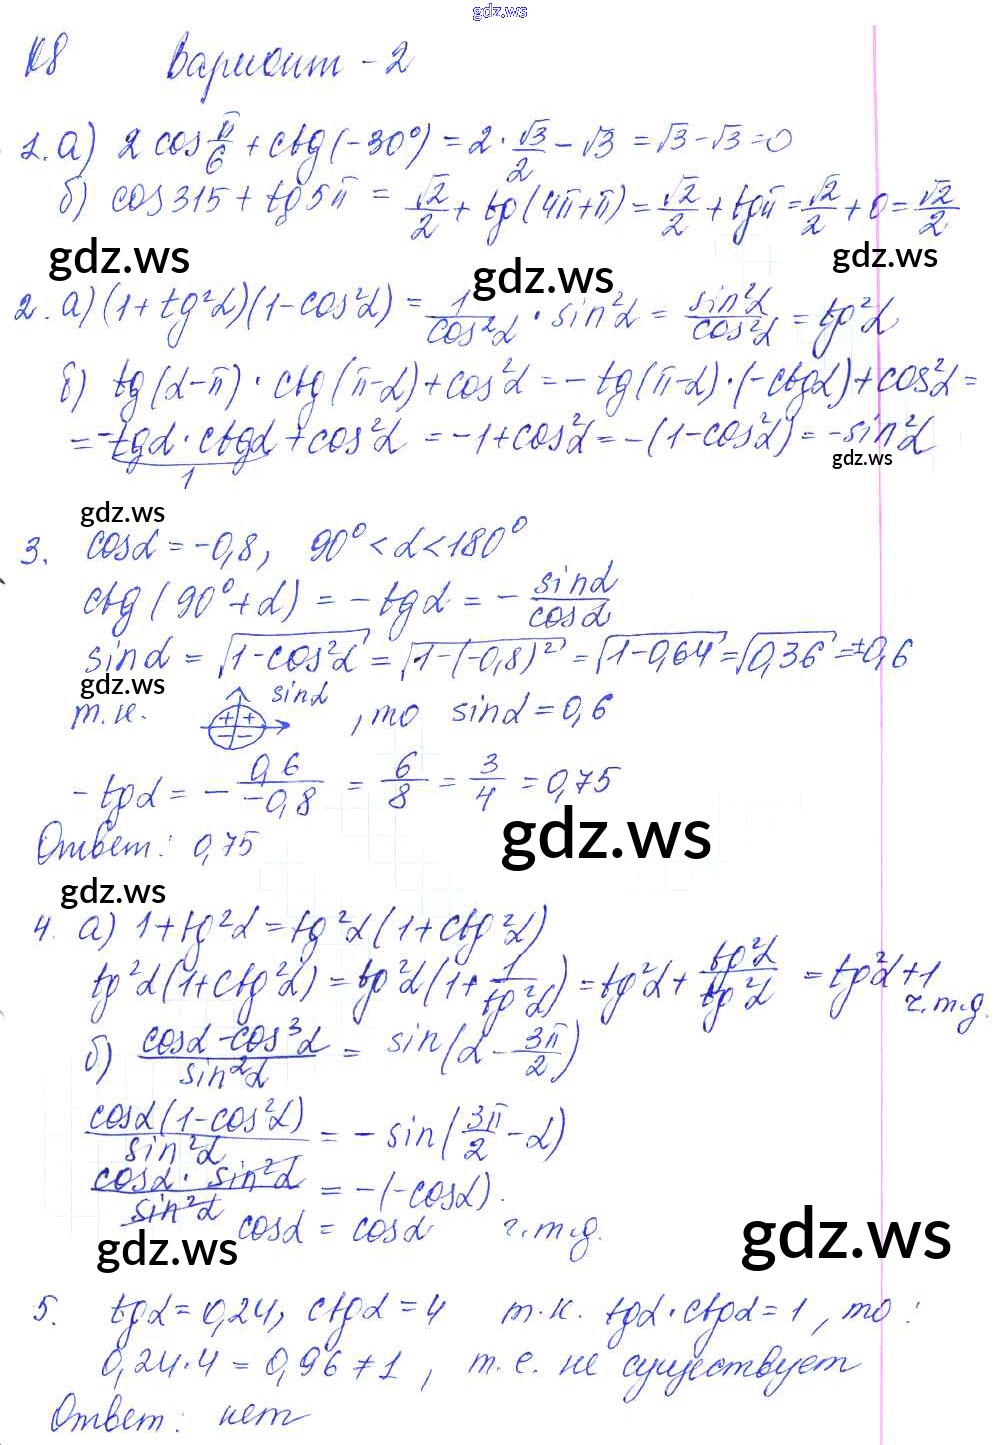 gdz.ws
К8 Вариант - 2
1. а) 2 cos π/6 + ctg(-30°) = 2 · √3/2 - √3 = √3 - √3 = 0
б) cos 315 + tg 5π = √2/2 + tg(4π+π) = √2/2 + tg π = √2/2 + 0 = √2/2
gdz.ws gdz.ws gdz.ws
2. а) (1+tg²α)(1-cos²α) = 1/cos²α · sin²α = sin²α/cos²α = tg²α
б) tg(α-π) · ctg(π-α) + cos²α = -tg(π-α)·(-ctgα) + cos²α =
= -tgα · ctgα + cos²α = -1+cos²α = -(1-cos²α) = -sin²α
1
gdz.ws
gdz.ws
3. cosα = -0,8, 90° < α < 180°
ctg(90°+α) = -tgα = - sinα/cosα
sinα = √(1-cos²α) = √(1-(-0,8)²) = √(1-0,64) = √0,36 = ±0,6
gdz.ws
т.к. + + - - sinα , то sinα = 0,6
-tgα = - 0,6/-0,8 = 6/8 = 3/4 = 0,75
gdz.ws
Ответ: 0,75
gdz.ws
4. а) 1+tg²α = tg²α(1+ctg²α)
tg²α(1+ctg²α) = tg²α(1+ 1/tg²α) = tg²α + tg²α/tg²α = tg²α+1
ч.т.д.
б) cosα - cos³α/sin²α = sin(α - 3π/2)
cosα(1-cos²α)/sin²α = -sin(3π/2 - α)
cosα · sin²α/sin²α = -(-cosα).
cosα = cosα ч.т.д.
gdz.ws gdz.ws
5. tgα = 0,24, ctgα = 4 т.к. tgα · ctgα = 1, то:
0,24·4 = 0,96 ≠ 1, т.е. не существует
Ответ: нет